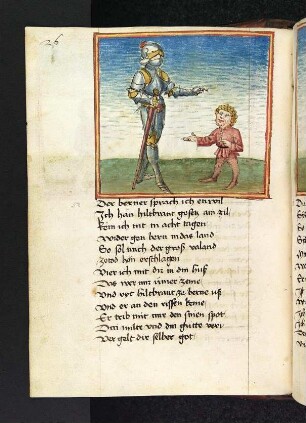 26
Der berner sprach ich enwil
Ich han hilbrant gesetzt ain zil
kem ich nit in acht tagen
wider gen bern in das land
So sol mich der groß valand
ze tod hon erschlagen
Vier ich mit dir in din huß
Das wer mir ÿmer
Und rit hiltbrant ze berne uß
Und er an den rissen keme
Er trib mit mir den sinen spot
Din milte und din gutte
Ver galt dir selber got